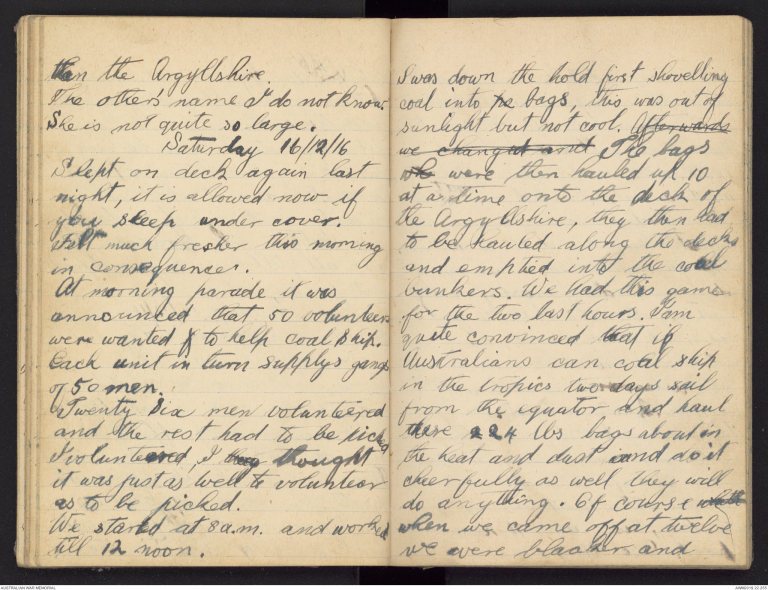 than the Argyllshire.
The other's name I do not know.
She is not quite so large.
Saturday 16/12/16
Slept on deck again last
night, it is allowed now if
you sleep under cover.
Felt much fresher this morning
in consequence.
At morning parade it was
announced that 50 volunteers
were wanted to help coal ship.
Each unit in turn supplys gangs
of 50 men.
Twenty six men volunteered
and the rest had to be picked
I volunteered, I thought
it was just as well to volunteer
as to be picked.
We started at 8 a.m. and worked
till 12 noon.
I was down the hold first shovelling
coal into bags, this was out of
sunlight but not cool. Afterwards
we changed and The bags
were then hauled up 10
at a time onto the deck of
the Argyllshire, they then had
to be hauled along the decks
and emptied into the coal
bunkers. We had this game
for the two last hours. I am
quite convinced that if
Australians can coal ship
in the tropics two days sail
from the equator and haul
these 224 lbs bags about in
the heat and dust and do it
cheerfully as well they will
do anything. Of course
when we came off at twelve
we were blacker and
AUSTRALIAN WAR MEMORIAL